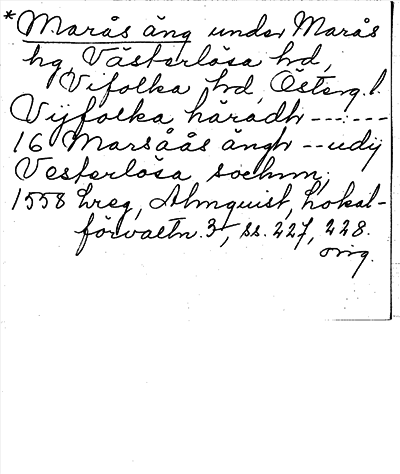 *Marås äng under Marås
hg, Västerlösa hd,
Vifolka hd, Österg. l.
Vijfolka häradh ------
16 Marsåås ängh -- udij
Vesterlösa sochnn,
1558 Lreg, Almquist, Lokal-
förvaltn. 3, ss. 227, 228.
orig.